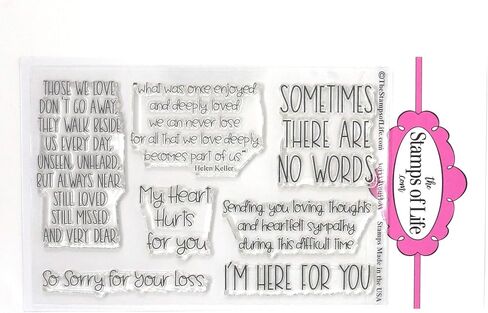 THOSE WE LOVE
DON'T GO AWAY,
THEY WALK BESIDE
US EVERY DAY,
UNSEEN, UNHEARD,
BUT ALWAYS NEAR,
STILL LOVED
STILL MISSED
AND VERY DEAR.
"what was once enjoyed
and deeply loved,
we can never lose
for all that we love deeply
becomes part of us"
Helen Keller
SOMETIMES
THERE ARE
NO WORDS
My Heart
Hurts
for you
Sending you loving thoughts
and heartfelt sympathy
during this difficult time
So Sorry for Your Loss
I'M HERE FOR YOU
©TheStampsofLife.com
Stamps Made in the USA
the
Stamps of Life
.com